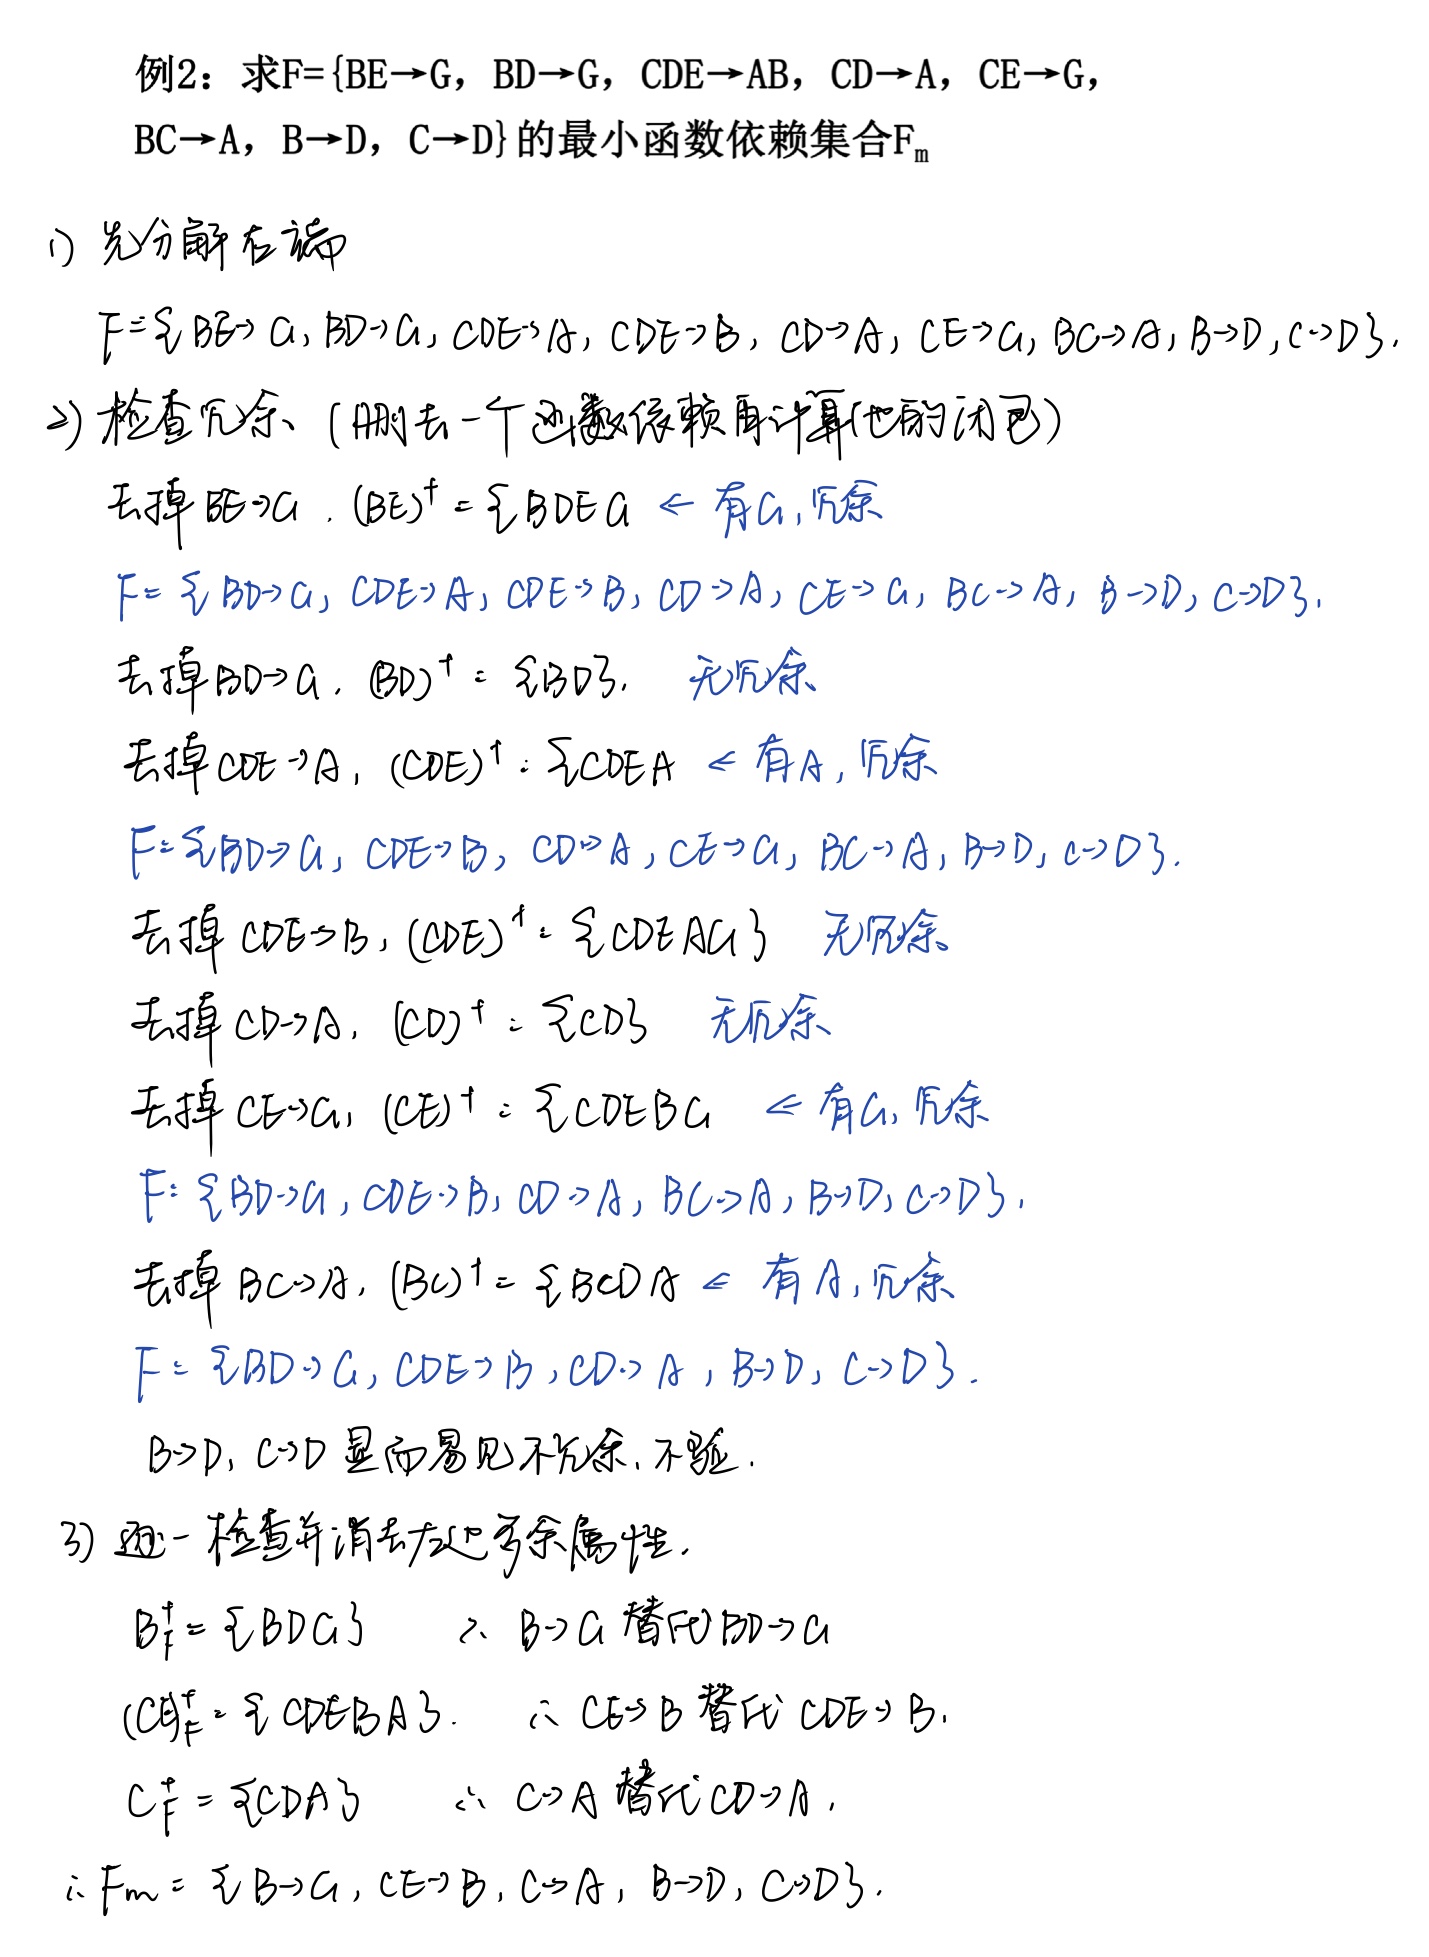 例2：求F={BE→G，BD→G，CDE→AB，CD→A，CE→G，
BC→A，B→D，C→D}的最小函数依赖集合Fm
1) 先分解右端
F={BE→G, BD→G, CDE→A, CDE→B, CD→A, CE→G, BC→A, B→D, C→D}.
2) 检查冗余 (删去一个函数依赖再计算他的闭包)
去掉BE→G. (BE)⁺={BDEG ← 有G,冗余
F={BD→G, CDE→A, CDE→B, CD→A, CE→G, BC→A, B→D, C→D}.
去掉BD→G. (BD)⁺={BD}. 无冗余
去掉CDE→A, (CDE)⁺={CDEA ← 有A,冗余
F={BD→G, CDE→B, CD→A, CE→G, BC→A, B→D, C→D}.
去掉CDE→B, (CDE)⁺={CDEAG} 无冗余
去掉CD→A. (CD)⁺={CD} 无冗余
去掉CE→G, (CE)⁺={CDEBG ← 有G,冗余
F={BD→G, CDE→B, CD→A, BC→A, B→D, C→D}.
去掉BC→A. (BC)⁺={BCDA ← 有A,冗余
F={BD→G, CDE→B, CD→A, B→D, C→D}.
B→D, C→D 显而易见不冗余,不验.
3) 逐一检查并消去左边多余属性.
B⁺F={BDG} ∴ B→G替代BD→G
(CE)⁺F={CDEBA}. ∴ CE→B替代CDE→B.
C⁺F={CDA} ∴ C→A替代CD→A.
∴ Fm={B→G, CE→B, C→A, B→D, C→D}.